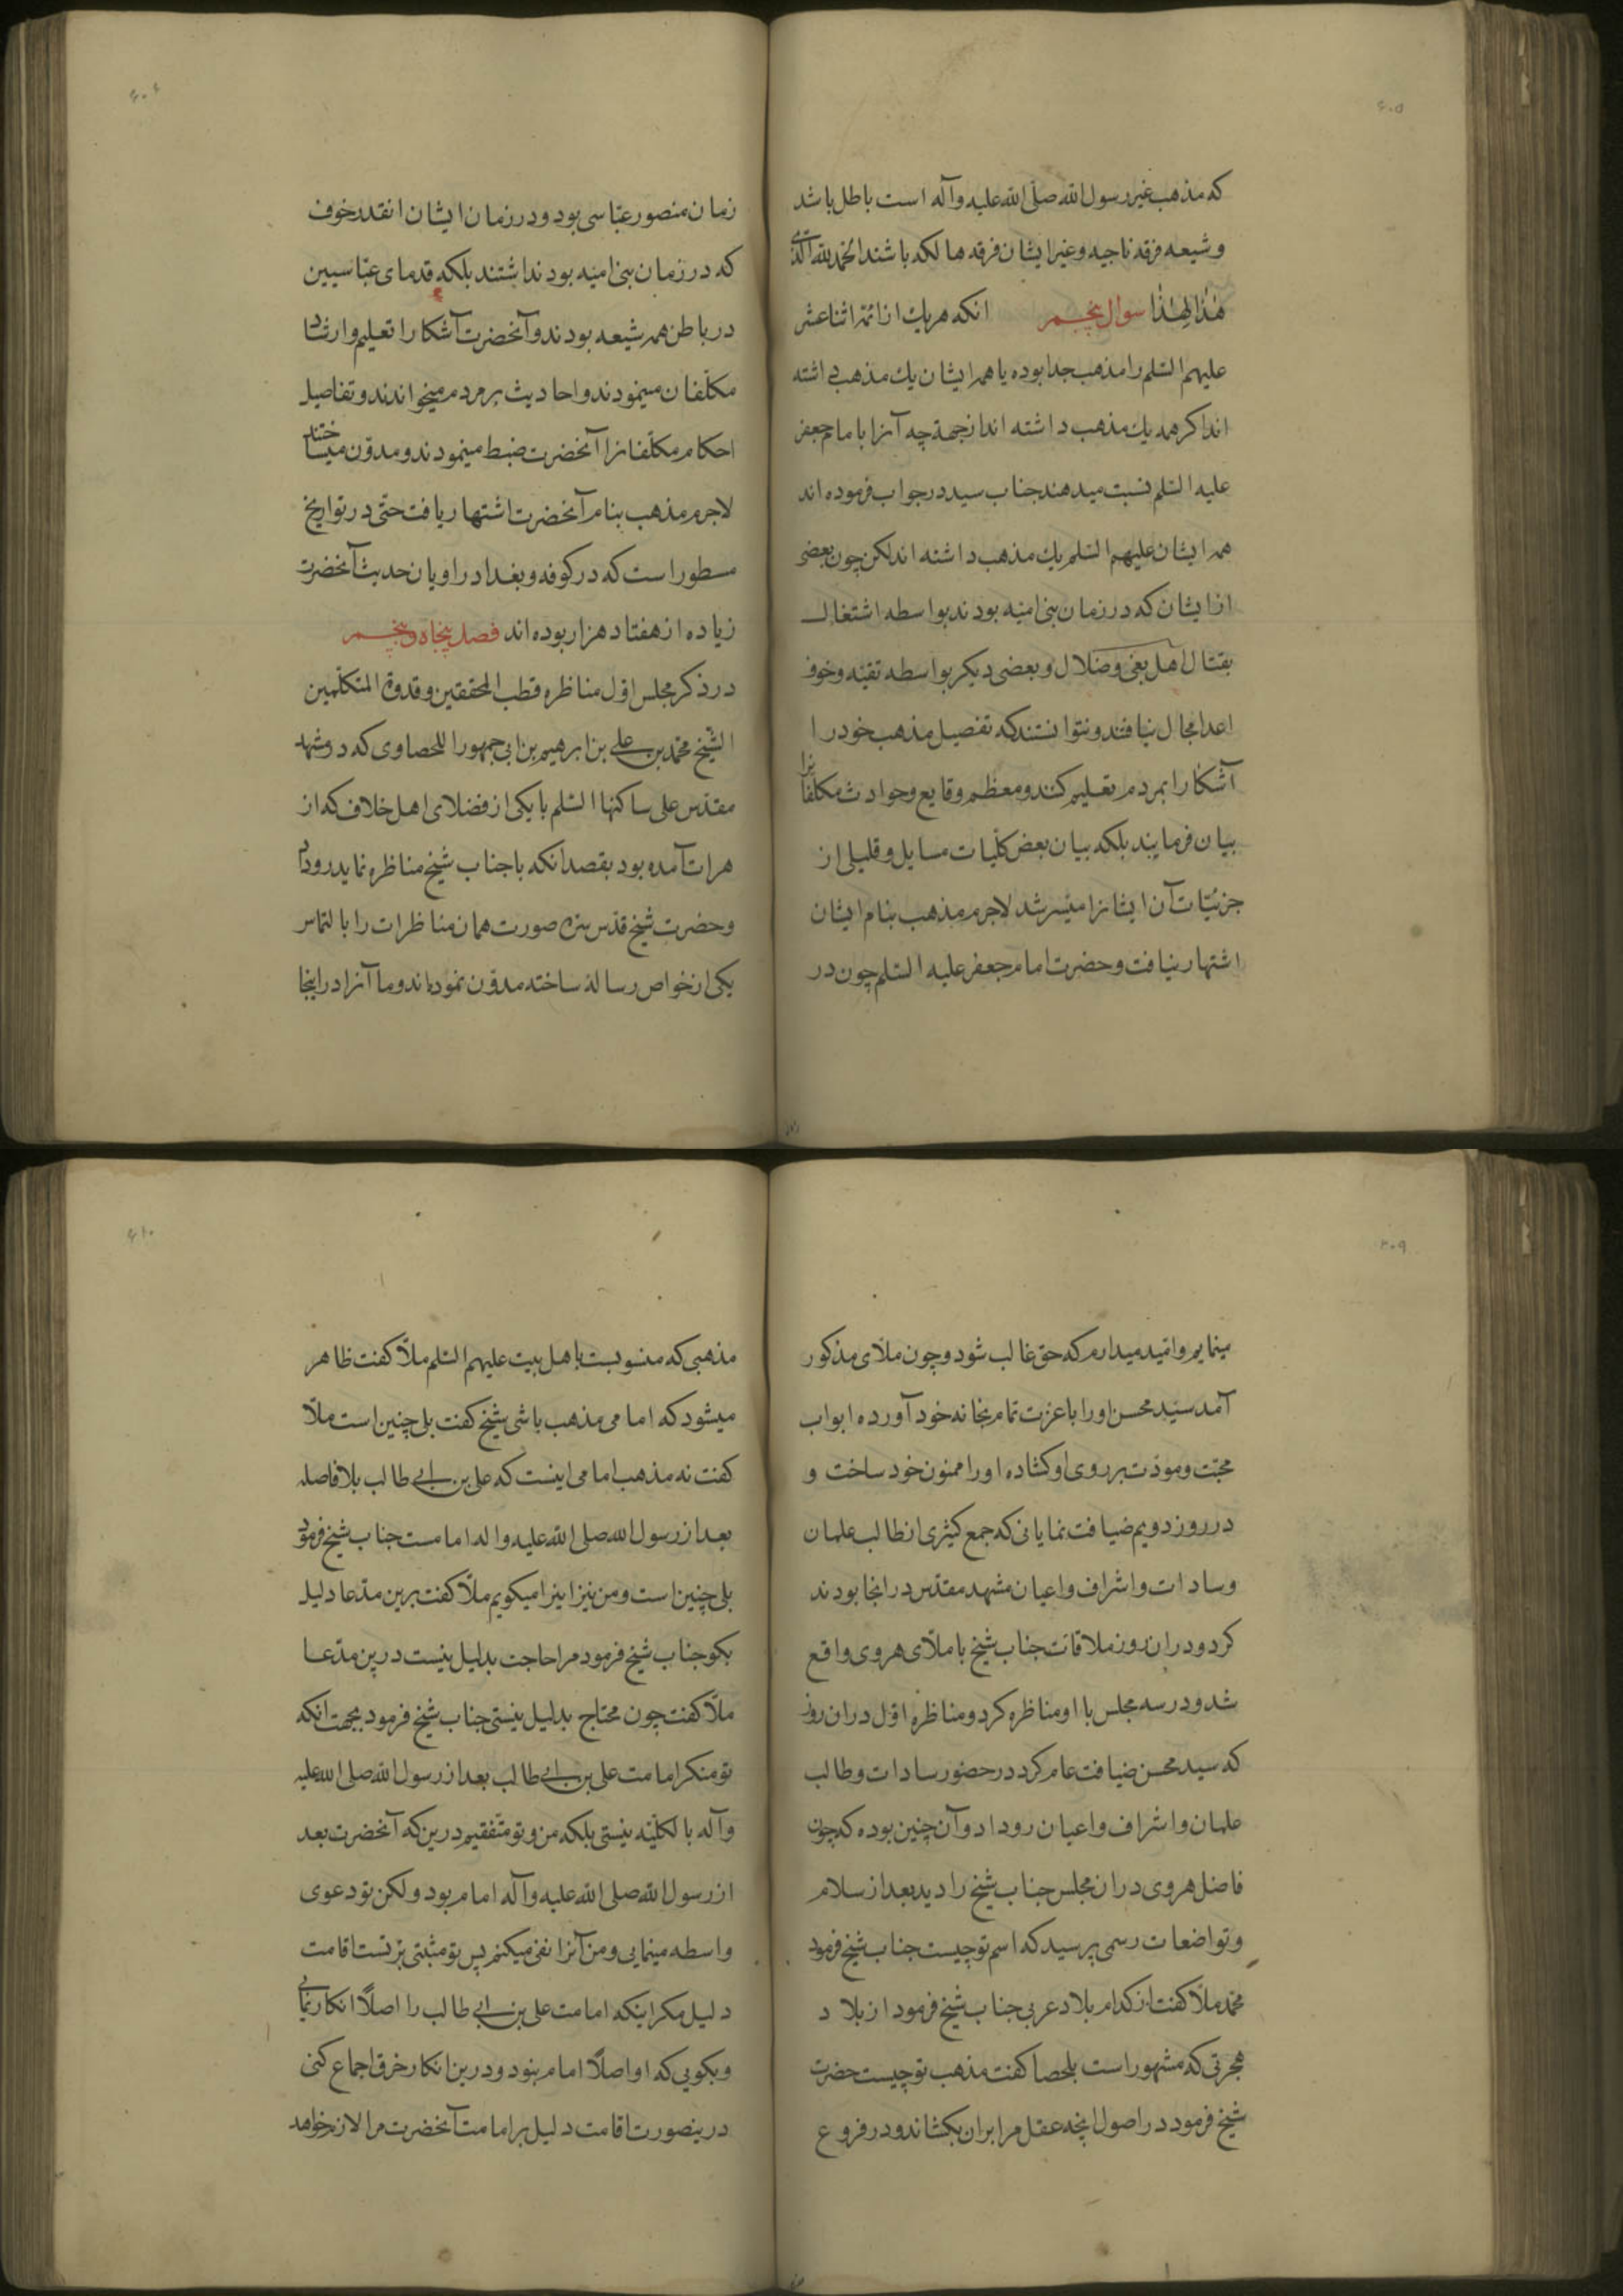 ۶۰۵
که مذهب غیر رسول الله صلی الله علیه وآله است باطل باشد
و شیعه فرقه ناجیه و غیر ایشان فرقه هالکه باشند الحمد لله الذی
هذا لهذا سوال پنجم انکه هریک از ائمه اثنا عشر
علیهم السلم را مذهب جدا بوده یا همه ایشان یک مذهب داشته
اند اکر همه یک مذهب داشته اند از جهة چه آنرا بامام جعفر
علیه السلم نسبت میدهند جناب سید در جواب فرموده اند
همه ایشان علیهم السلم یک مذهب داشته اند لکن چون بعضی
از ایشان که در زمان بنی امیه بودند بواسطه اشتغال
بقتال اهل بغی و ضلال و بعضی دیکر بواسطه تقیه و خوف
اعدا مجال نیافتند و نتوانستند که تفصیل مذهب خود را
آشکارا بمردم تعلیم کنند و معظم وقایع و حوادث مکلفانرا
بیان فرمایند بلکه بیان بعض کلیات مسایل و قلیلی از
جزئیات آن ایشانرا میسر شد لاجرم مذهب بنام ایشان
اشتهار نیافت و حضرت امام جعفر علیه السلم چون در
۶۰۶
زمان منصور عباسی بود و در زمان ایشان انقدر خوف
که در زمان بنی امیه بود نداشتند بلکه قدمای عباسیین
در باطن همه شیعه بودند و آنحضرت آشکارا تعلیم و ارشاد
مکلفان مینمودند و احادیث بر مردم میخواندند و تفاصیل
احکام مکلفانرا آنحضرت ضبط مینمودند و مدون میساختند
لاجرم مذهب بنام آنحضرت اشتهار یافت حتی در تواریخ
مسطور است که در کوفه و بغداد راویان حدیث آنحضرت
زیاده از هفتاد هزار بوده اند فصل پنجاه و پنجم
در ذکر مجلس اول مناظره قطب المحققین و قدوة المتکلمین
الشیخ محمد بن علی بن ابرهیم بن ابی جمهور اللحصاوی که در مشهد
مقدس علی ساکنها السلم با یکی از فضلای اهل خلاف که از
هرات آمده بود بقصد انکه با جناب شیخ مناظره نماید روداد
و حضرت شیخ قدس سره صورت همان مناظرات را بالتماس
یکی از خواص رسالهٔ ساخته مدون نموده اند و ما آنرا در اینجا
۶۰۹
مینمایم و امید میدارم که حق غالب شود و چون ملای مذکور
آمد سید محسن او را با عزت تمام بخانه خود آورده ابواب
محبت و مودت بر روی او کشاده او را ممنون خود ساخت و
در روز دویم ضیافت نمایانی که جمع کثیری از طالب علمان
و سادات و اشراف و اعیان مشهد مقدس در انجا بودند
کرد و در ان روز ملاقات جناب شیخ با ملای هروی واقع
شد و در سه مجلس با او مناظره کرد و مناظره اول دران روز
که سید محسن ضیافت عام کرد در حضور سادات و طالب
علمان و اشراف و اعیان روداد و آن چنین بوده که چون
فاضل هروی در ان مجلس جناب شیخ را دید بعد از سلام
و تواضعات رسمی پرسید که اسم تو چیست جناب شیخ فرمود
محمد ملا کفت از کدام بلاد عربی جناب شیخ فرمود از بلاد
هجرتی که مشهور است بلحصا کفت مذهب تو چیست حضرت
شیخ فرمود در اصول انچه عقل مرا بران بکشاند و در فروع
۶۱۰
مذهبی که منسوبست باهل بیت علیهم السلم ملا کفت ظاهر
میشود که امامی مذهب باشی شیخ کفت بلی چنین است ملا
کفت نه مذهب امامی اینست که علی بن ابی طالب بلا فاصله
بعد از رسول الله صلی الله علیه واله امامست جناب شیخ فرمود
بلی چنین است و من نیز اینرا میکویم ملا کفت برین مدعا دلیل
بکو جناب شیخ فرمود مرا حاجت بدلیل نیست درین مدعا
ملا کفت چون محتاج بدلیل نیستی جناب شیخ فرمود بجهت انکه
تو منکر امامت علی بن ابی طالب بعد از رسول الله صلی الله علیه
وآله بالکلیه نیستی بلکه من و تو متفقیم درین که آنحضرت بعد
از رسول الله صلی الله علیه وآله امام بود ولکن تو دعوی
واسطه مینمایی و من آنرا نفی میکنم پس تو مثبتی بر تست اقامت
دلیل مکر اینکه امامت علی بن ابی طالب را اصلاً انکار نمایی
و بکویی که او اصلاً امام نبود و درین انکار خرق اجماع کنی
درینصورت اقامت دلیل بر امامت آنحضرت مرا لازم خواهد